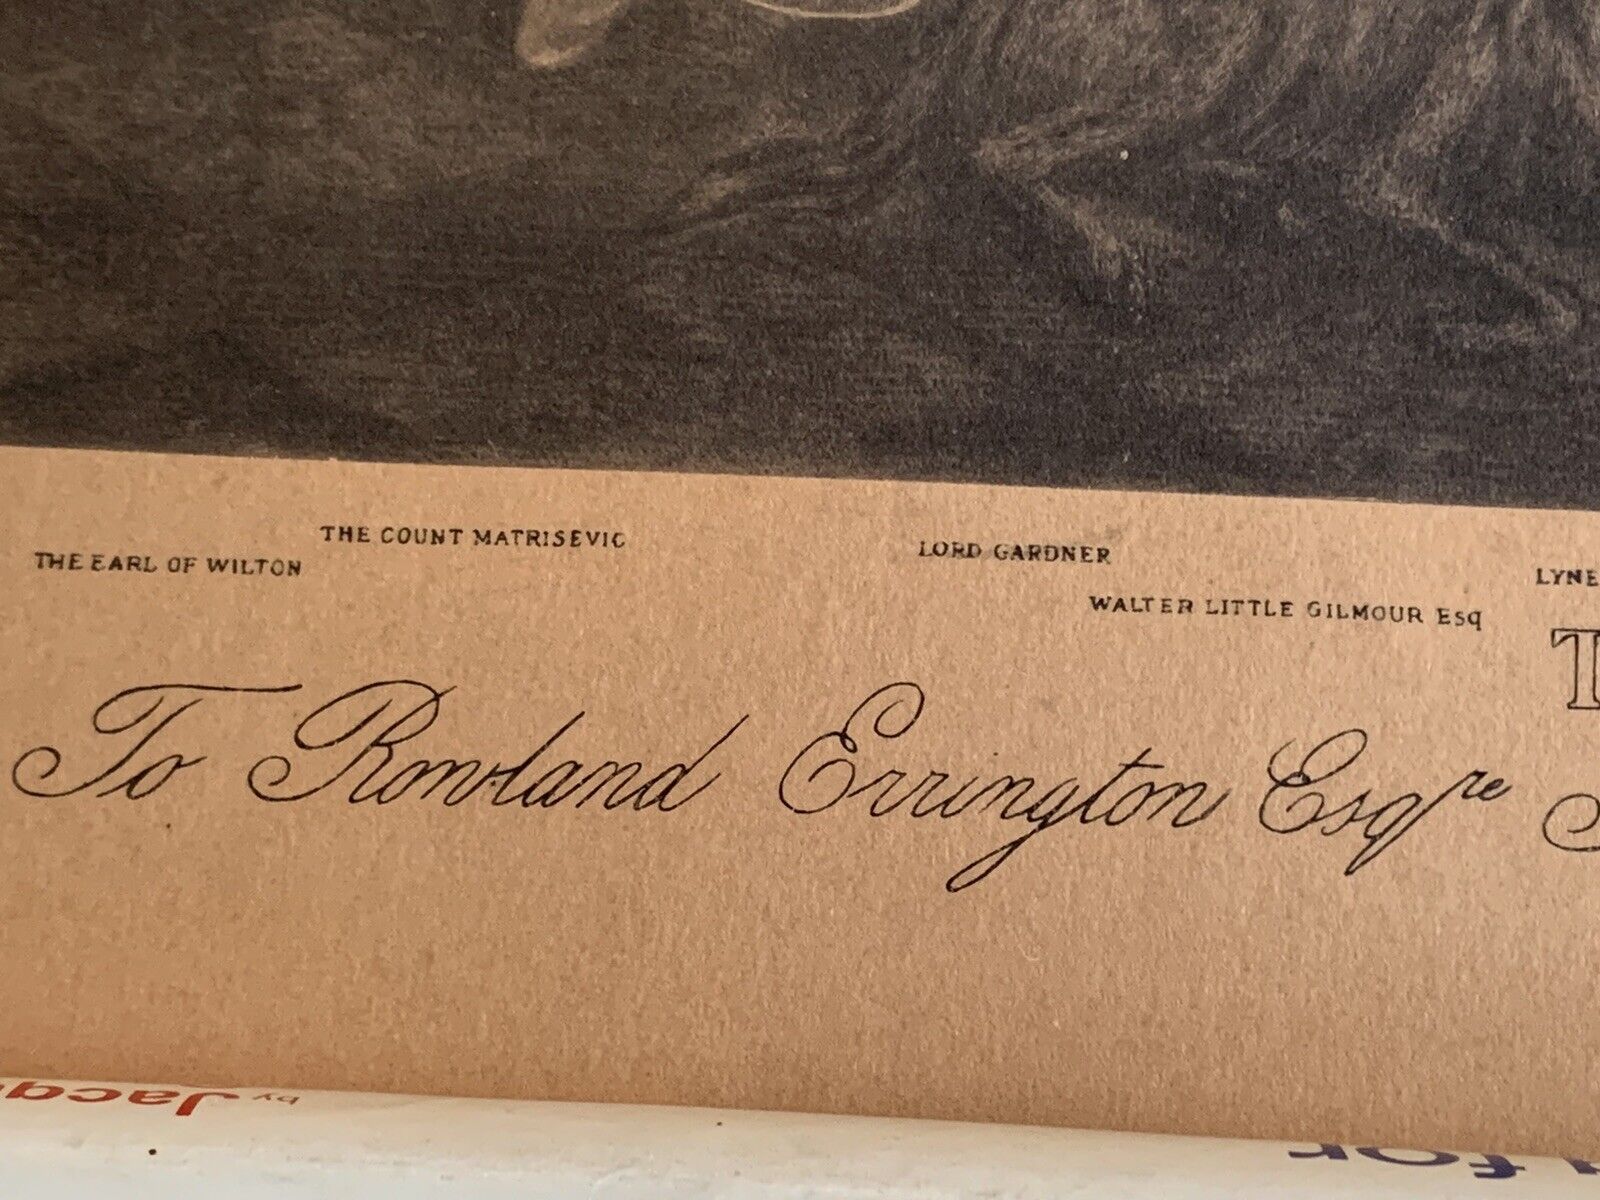 THE COUNT MATRISEVIC
LORD GARDNER
THE EARL OF WILTON
LYNE
WALTER LITTLE GILMOUR Esq
T
To Rowland Errington Esqre
by Jacq
for